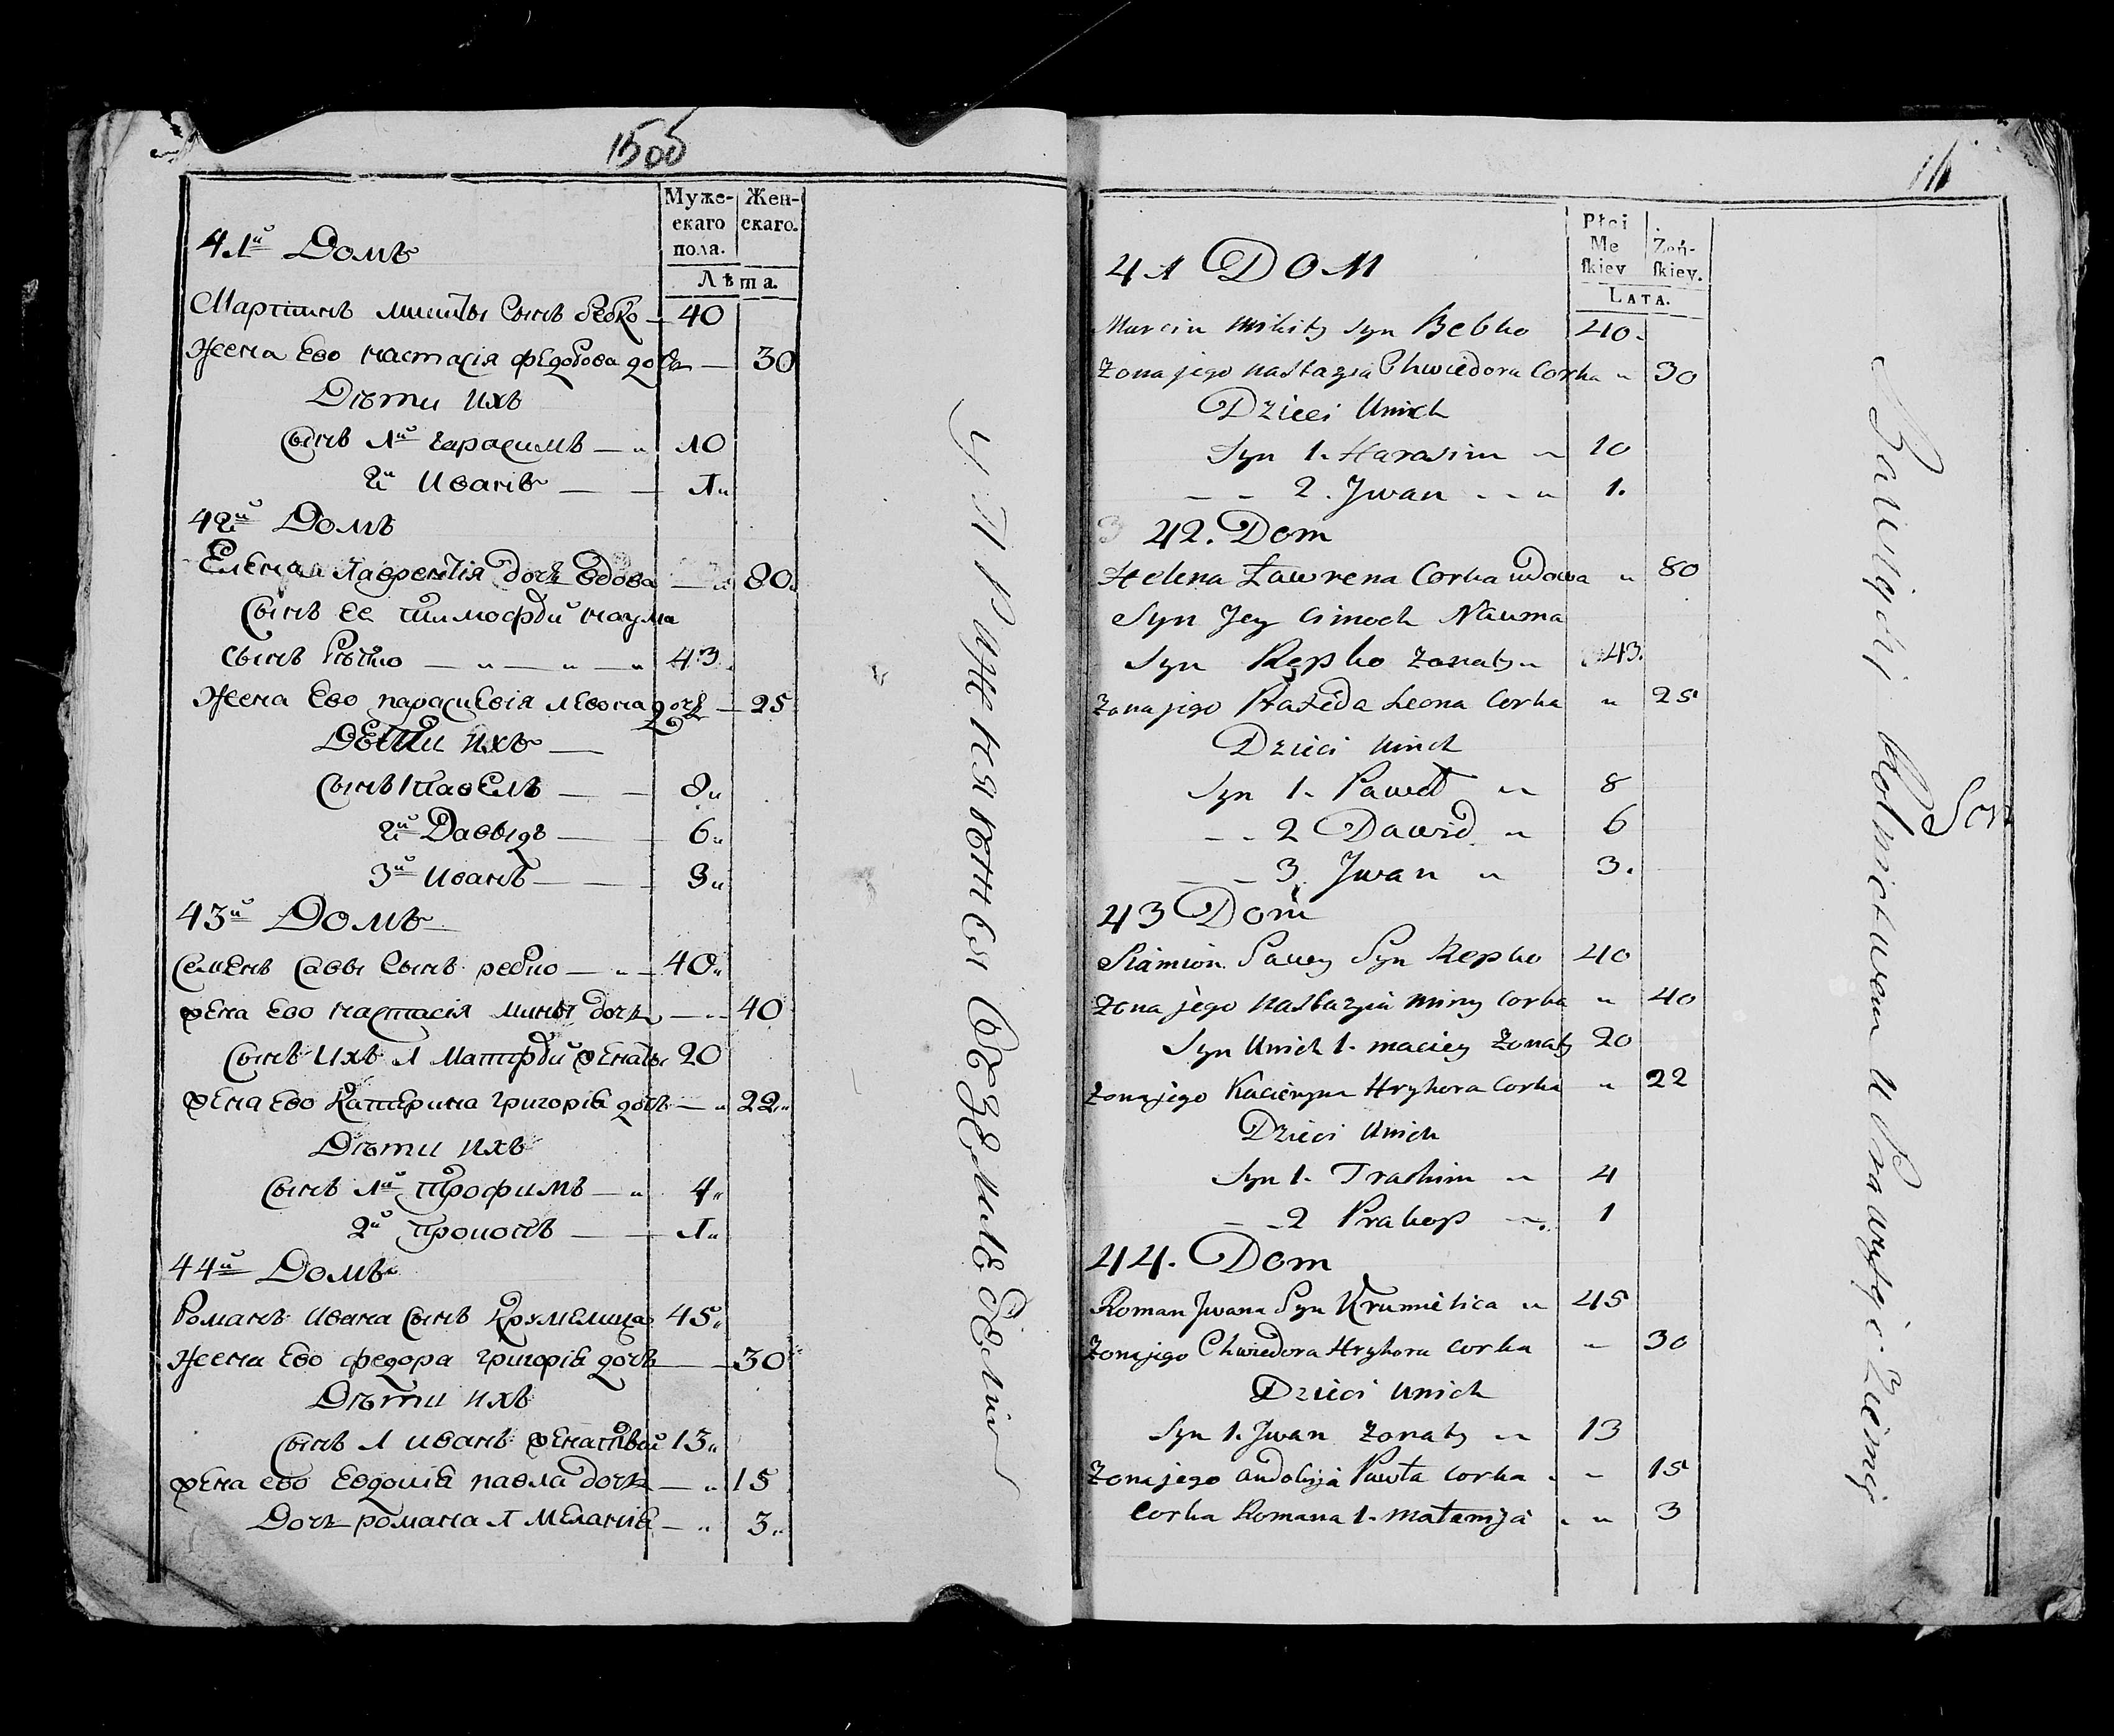 15об
Муже- Жен-
скаго скаго.
пола.
Лѣта.
41й Домъ
Мартинъ микиты сынъ бебко 40
Жена Ево настасія федорова дочь 30
Дѣти ихъ
Сынъ 1й гарасимъ 10
2й Иванъ 1
42й Домъ
Елена Лаврентія дочь вдова 80
Сынъ ее тимофѣй наума
сынъ 43
Жена Ево парасцевія левона дочь 25
Дети ихъ
Сынъ 1 Павелъ 8
2й Давыдъ 6
3й Иванъ 3
43й Домъ
Семенъ Савы Сынъ репко 40
жена Ево настасія мины дочь 40
Сынъ ихъ 1 Матфѣй женаты 20
жена Ево Катерина григорія дочь 22
Дѣти ихъ
Сынъ 1й трофимъ 4
2й прокопъ 1
44й Домъ
Романъ Ивана Сынъ Крумелица 45
Жена Ево федора григорія дочь 30
Дѣти ихъ
Сынъ 1 иванъ женатый 13
жена ево Евдокія павла дочь 15
Дочь романа 1 Меланія 3
упражняются въ земледеліи
16
Płci Żeń-
Me skiey.
skiey
LATA.
41 DOM
Marcin Mikity syn Bebko 40
Zona jego nastazia Chwiedora Corka 30
Dzieci Unich
Syn 1. Harasim 10
2. Jwan 1.
42. Dom
Helena Ławrena Corka wdowa 80
Syn Jey Cimoch Nauma
Syn Repko Zonaty 43.
Zona jego Prazeda Leona Corka 25
Dzieci Unich
Syn 1. Paweł 8
2 Dawid 6
3. Jwan 3.
43 Dom
Siamion Sawy Syn Repko 40
Zona jego nastazia miny Corka 40
Syn Unich 1. maciey Zonaty 20
Zona jego Kacieryna Hryhora Corka 22
Dzieci Unich
Syn 1. Trachim 4
2 Prakop 1
44. Dom
Roman Jwana Syn Krumielica 45
Zona jego Chwiedora Hryhora Corka 30
Dzieci Unich
Syn 1. Jwan Zonaty 13
Zona jego audokija Pawła Corka 15
Corka Romana 1. małanija 3
Bawiących Rolnictwem U Prawujące Ziemię